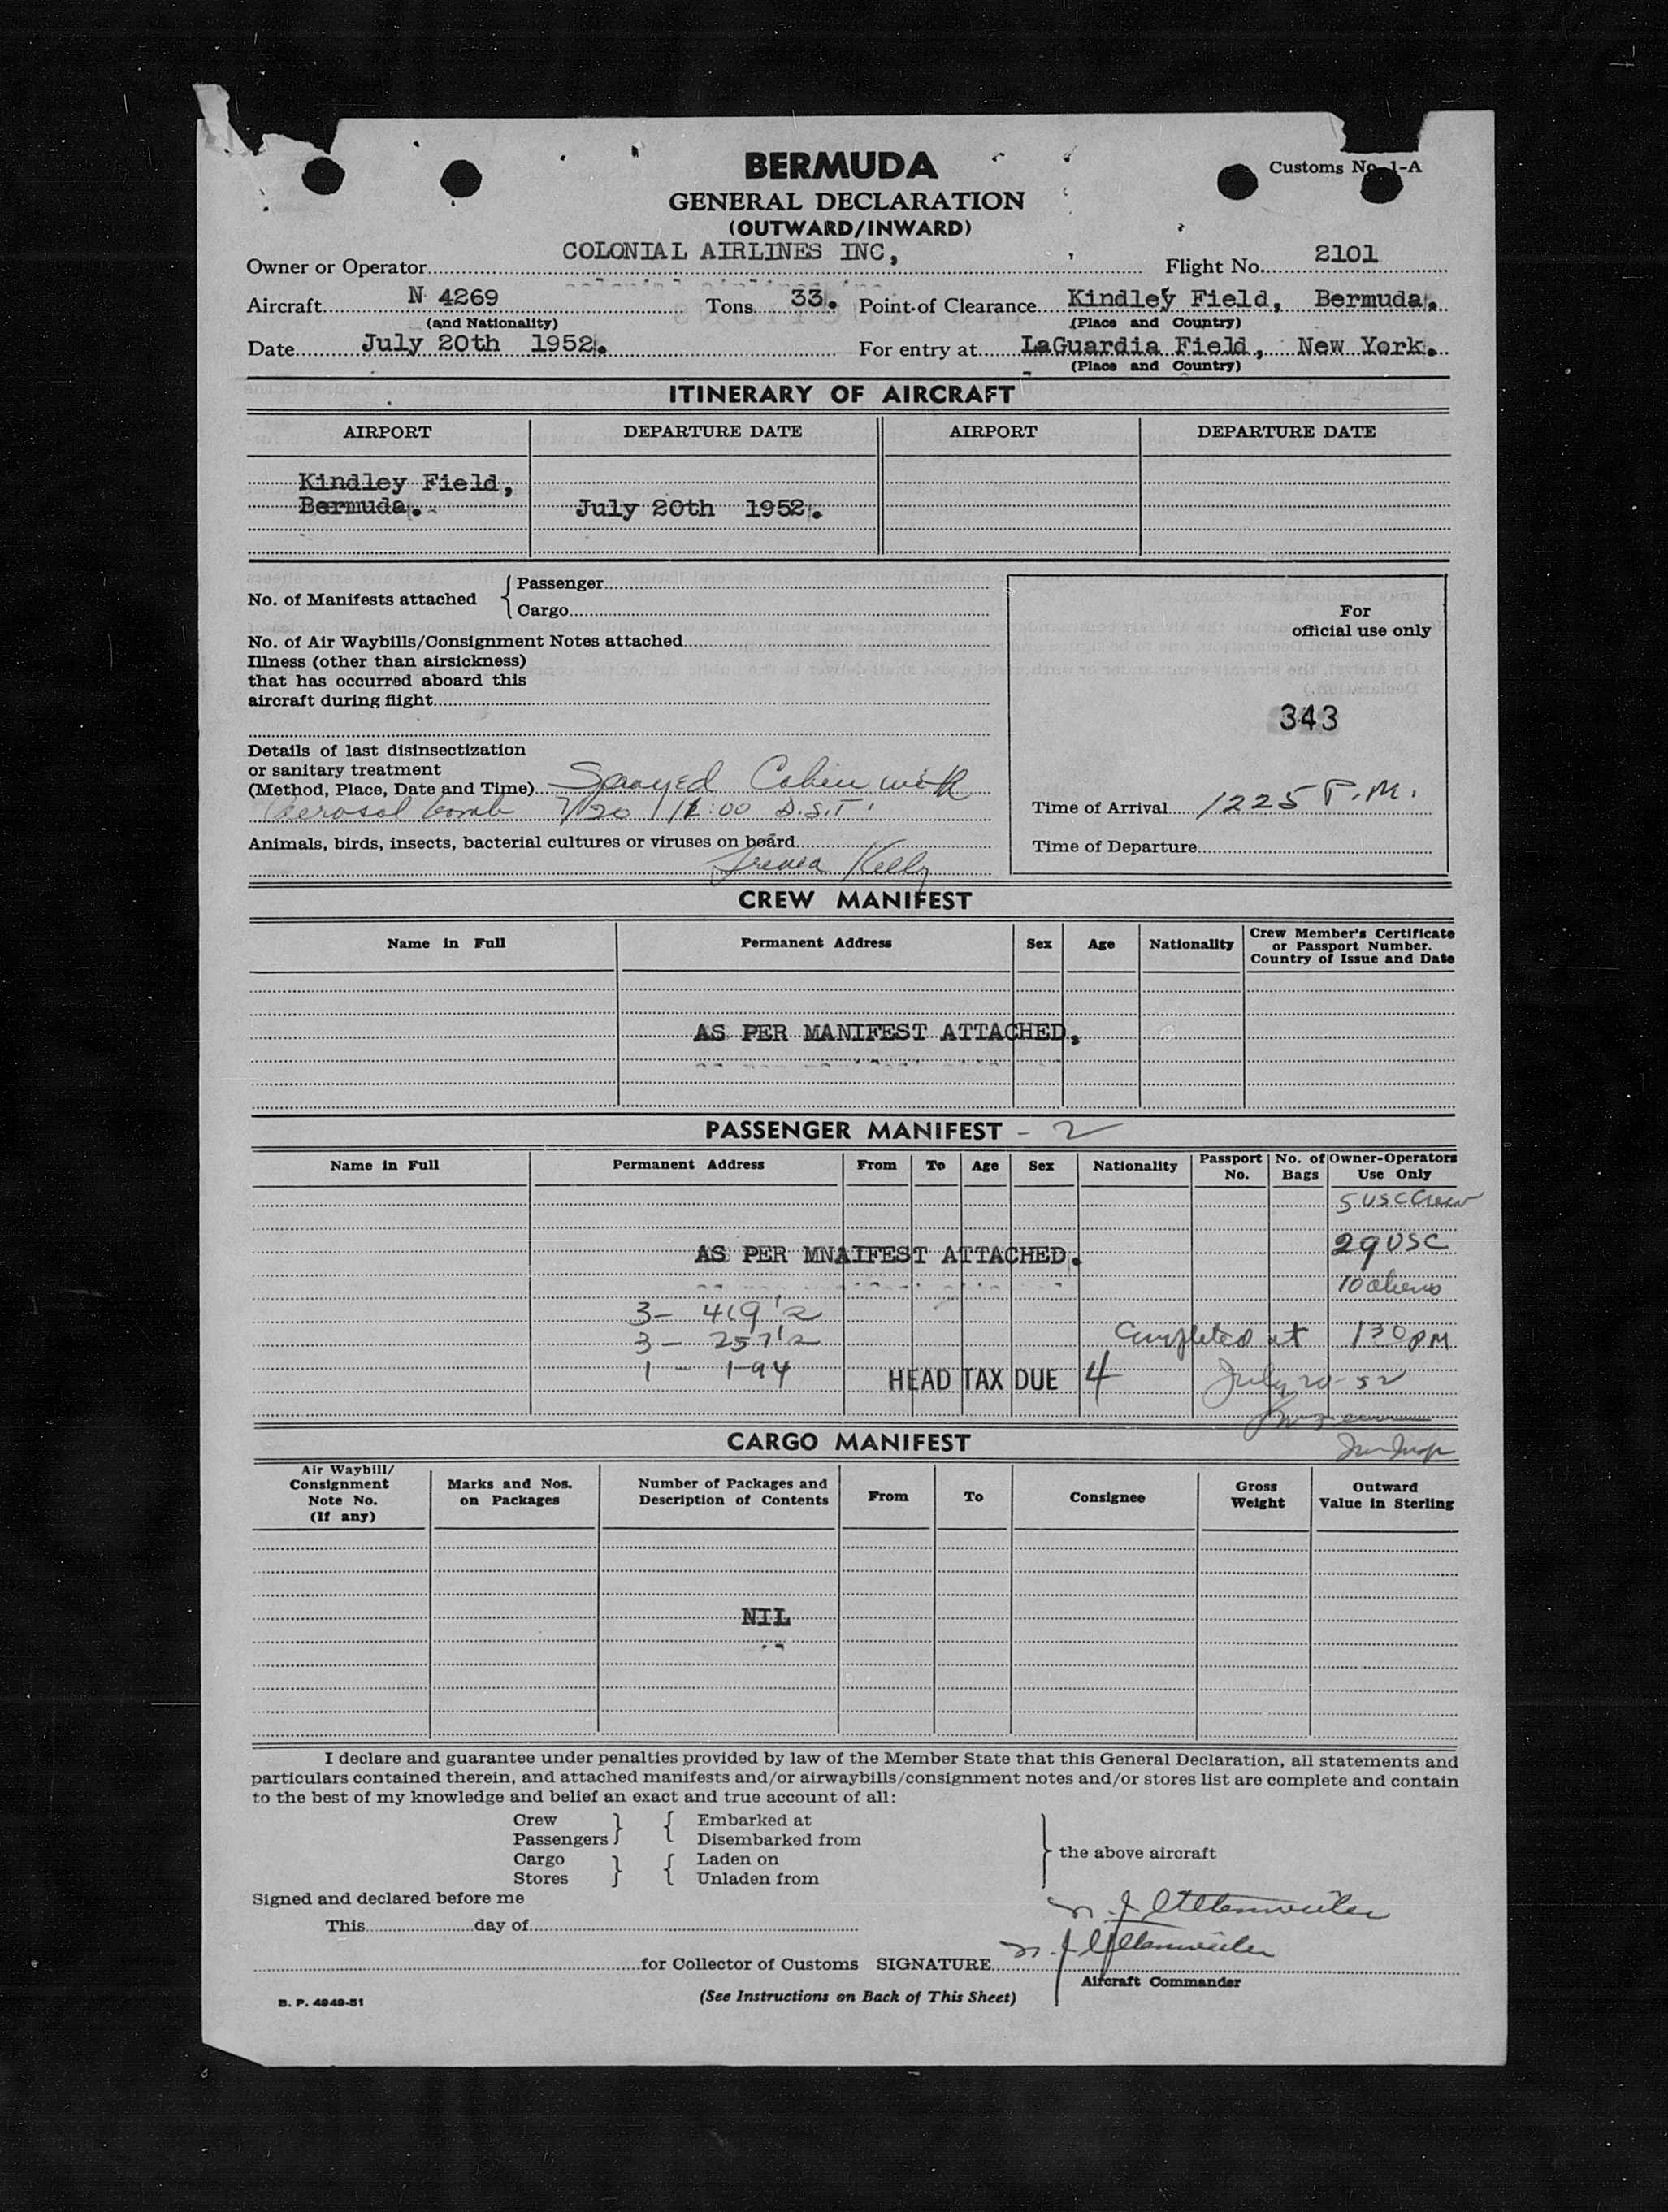 BERMUDA
Customs No. 1-A
GENERAL DECLARATION
(OUTWARD/INWARD)
Owner or Operator COLONIAL AIRLINES INC, Flight No. 2101
Aircraft N 4269 Tons 33. Point of Clearance Kindley Field, Bermuda.
(and Nationality) (Place and Country)
Date July 20th 1952. For entry at LaGuardia Field, New York.
(Place and Country)
ITINERARY OF AIRCRAFT
AIRPORT DEPARTURE DATE AIRPORT DEPARTURE DATE
Kindley Field,
Bermuda. July 20th 1952.
No. of Manifests attached { Passenger
Cargo
For
official use only
No. of Air Waybills/Consignment Notes attached
Illness (other than airsickness)
that has occurred aboard this
aircraft during flight
343
Details of last disinsectization
or sanitary treatment
(Method, Place, Date and Time) Sprayed Cabin with
Aerosol bomb 7/20 11:00 D.S.T.
Time of Arrival 1225 P.M.
Animals, birds, insects, bacterial cultures or viruses on board
Time of Departure
Kelly
CREW MANIFEST
Name in Full Permanent Address Sex Age Nationality Crew Member's Certificate
or Passport Number.
Country of Issue and Date
AS PER MANIFEST ATTACHED,
PASSENGER MANIFEST - 2
Name in Full Permanent Address From To Age Sex Nationality Passport No. No. of Bags Owner-Operators Use Only
5 USC Crew
AS PER MNAIFEST ATTACHED. 29 USC
10 aliens
3 - 419's
3 - 257's Completed at 130 PM
1 - I-94 HEAD TAX DUE 4 July 20-52
CARGO MANIFEST
Air Waybill/
Consignment
Note No.
(If any)
Marks and Nos.
on Packages
Number of Packages and
Description of Contents
From To Consignee
Gross
Weight
Outward
Value in Sterling
NIL
I declare and guarantee under penalties provided by law of the Member State that this General Declaration, all statements and
particulars contained therein, and attached manifests and/or airwaybills/consignment notes and/or stores list are complete and contain
to the best of my knowledge and belief an exact and true account of all:
Crew } { Embarked at
Passengers } { Disembarked from
Cargo } { Laden on } the above aircraft
Stores } { Unladen from
Signed and declared before me
This day of
for Collector of Customs SIGNATURE
Aircraft Commander
B. P. 4949-51
(See Instructions on Back of This Sheet)